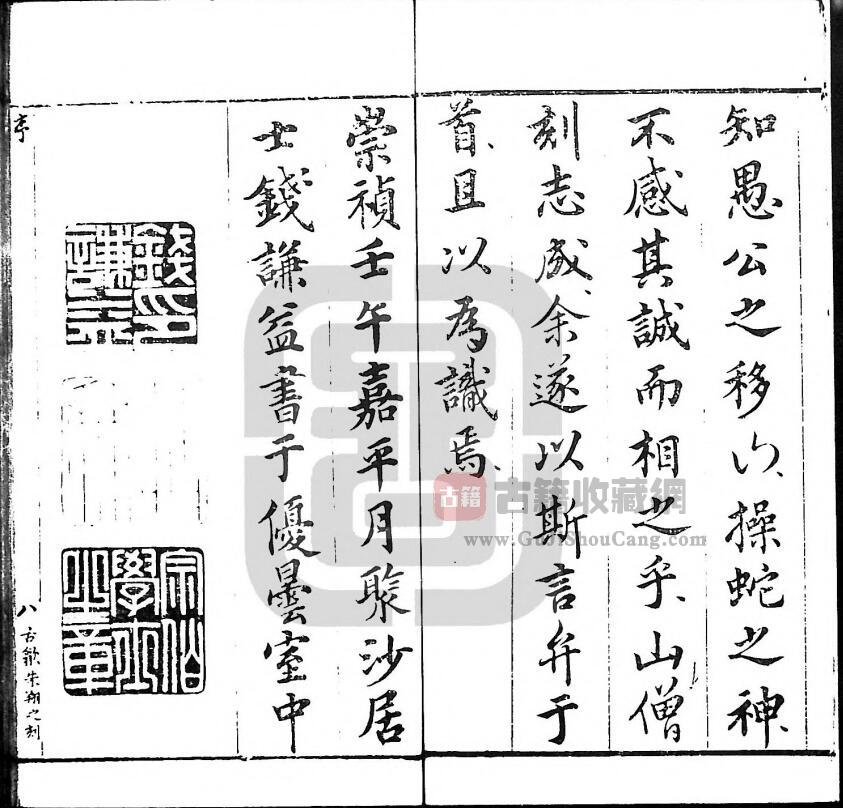 知愚公之移山、操蛇之神、
不感其誠而相之乎、山僧
刻志成、余遂以斯言弁于
首、且以為識焉、
崇禎壬午嘉平月聚沙居
士錢謙益書于優曇室中
錢印
謙益
宗伯
學士
之章
序
八
古歙朱翔之刻
古籍
古籍收藏網
www.GujiShouCang.com